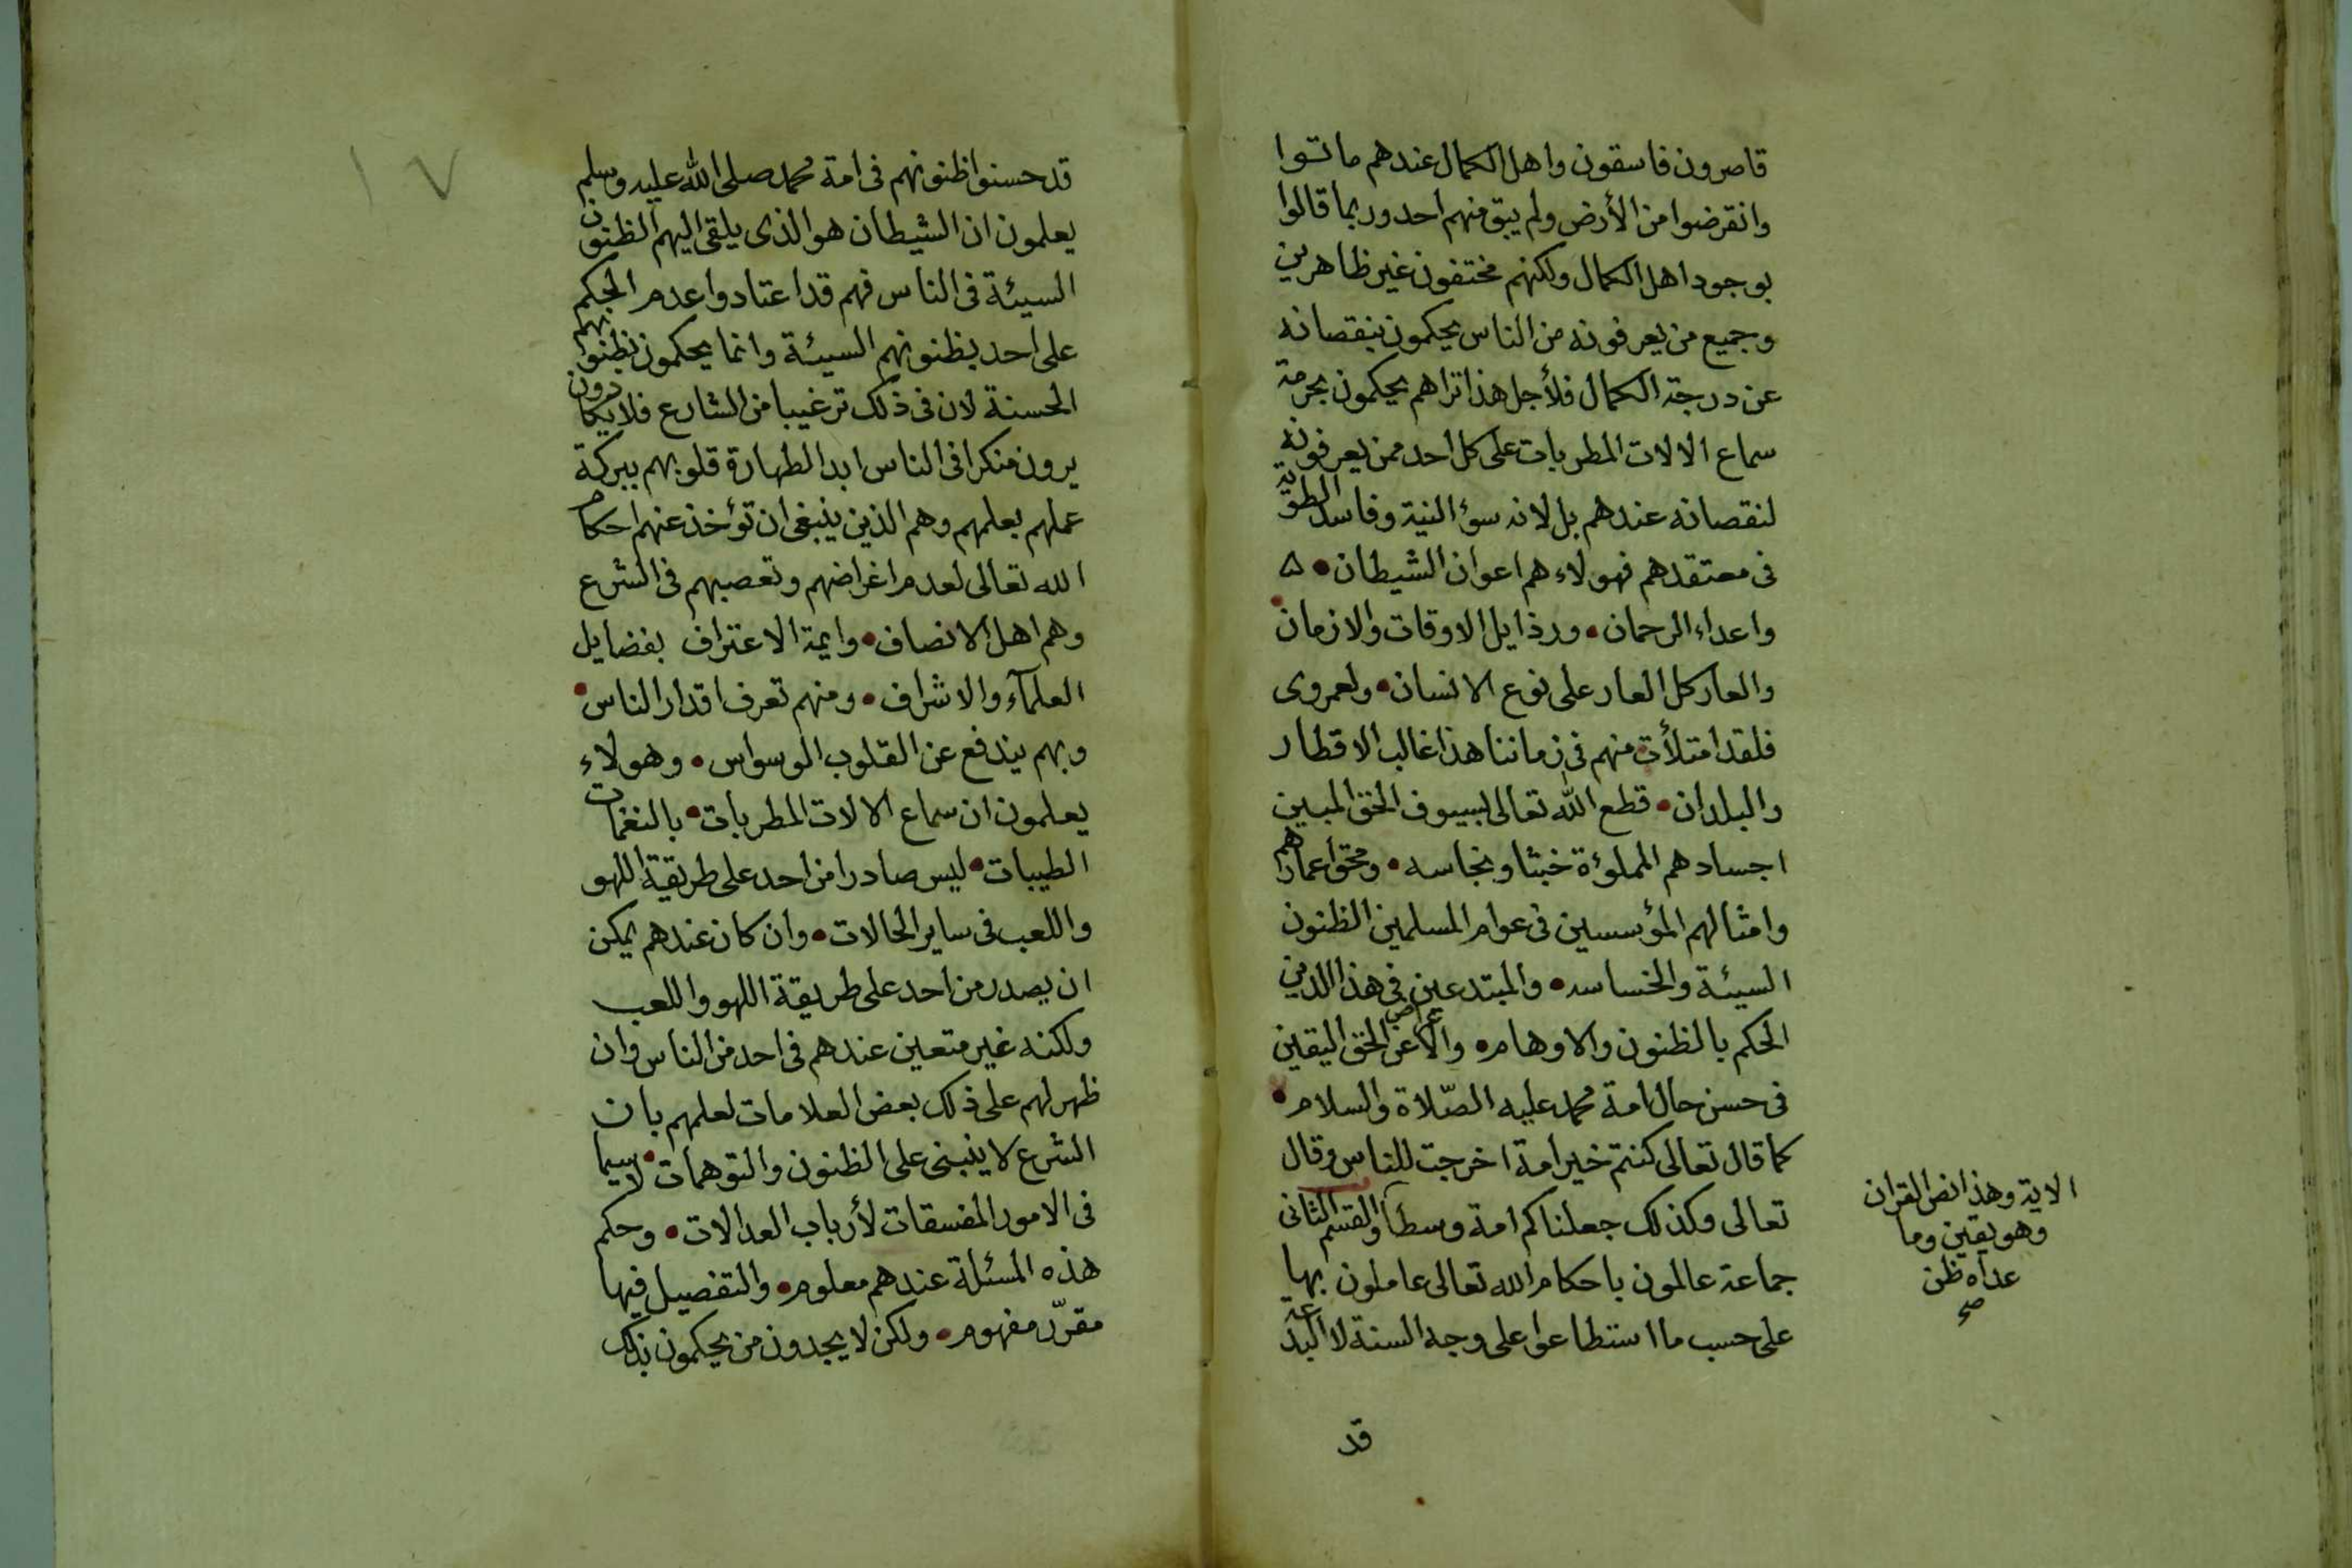 قاصرون فاسقون واهل الكمال عندهم ماتوا
وانقرضوا من الأرض ولم يبق منهم احد وربما قالوا
بوجود اهل الكمال ولكنهم مختفون غير ظاهرين
وجميع من يعرفونه من الناس يحكمون بنقصانه
عن درجة الكمال فلأجل هذا تراهم يحكمون بحرمة
سماع الالات المطربات على كل احد ممن يعرفونه
لنقصانه عندهم بل لانه سؤ النية وفاسد الطوية
فى معتقدهم فهولاء هم اعوان الشيطان • ه
واعداء الرحمان • ورذايل الاوقات والازمان •
والعار كل العار على نوع الانسان • ولعمروى
فلقد امتلأت منهم فى زماننا هذا غالب الاقطار
والبلدان • قطع الله تعالى بسيوف الحق المبين
اجسادهم المملوءة خبثا ونجاسه • ومحق اعمارهم
وامثالهم المؤسسين فى عوام المسلمين الظنون
السيئة والخساسه • والمبتدعين فى هذا الدين
الحكم بالظنون والاوهام • والاعراض عن الحق اليقين
فى حسن حال امة محمد عليه الصّلاة والسلام •
كما قال تعالى كنتم خير امة اخرجت للناس وقال
تعالى وكذلك جعلناكم امة وسطا والقسم الثانى
جماعة عالمون باحكام الله تعالى عاملون بها
على حسب ما استطاعوا على وجه السنة لا البدعة
قد
الاية وهذا نص القران
وهو يقين وما
عداه ظن
صح
١٧
قد حسنوا ظنونهم فى امة محمد صلى الله عليه وسلم
يعلمون ان الشيطان هو الذى يلقى اليهم الظنون
السيئة فى الناس فهم قد اعتادوا عدم الحكم
على احد بظنونهم السيئة وانما يحكمون بظنونهم
الحسنة لان فى ذلك ترغيبا من الشارع فلا يكادون
يرون منكرا فى الناس ابدا لطهارة قلوبهم ببركة
عملهم بعلمهم وهم الذين ينبغى ان تؤخذ عنهم احكام
الله تعالى لعدم اغراضهم وتعصبهم فى الشرع
وهم اهل الانصاف • وايمة الاعتراف بفضايل
العلمآء والاشراف • ومنهم تعرف اقدار الناس •
وبهم يندفع عن القلوب الوسواس • وهولاء
يعلمون ان سماع الالات المطربات • بالنغمات
الطيبات • ليس صادرا من احد على طريقة اللهو
واللعب فى ساير الحالات • وان كان عندهم يمكن
ان يصدر من احد على طريقة اللهو واللعب
ولكنه غير متعين عندهم فى احد من الناس وان
ظهر لهم على ذلك بعض العلامات لعلمهم بان
الشرع لا ينبنى على الظنون والتوهمات • لاسيما
فى الامور المفسقات لأرباب العدالات • وحكم
هذه المسئلة عندهم معلوم • والتفصيل فيها
مقرّر مفهوم • ولكن لا يجدون من يحكمون بذلك